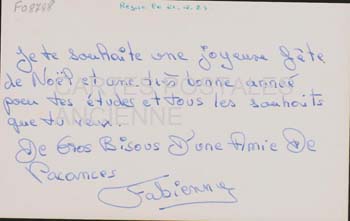 F08748
Reçue le 21.12.83
Je te souhaite une joyeuse fête
de Noël et une très bonne année
pour tes études et tous les souhaits
que tu veux.
De Gros Bisous D'une Amie De
Vacances
Fabienne
CARTES POSTALES
ANCIENNE